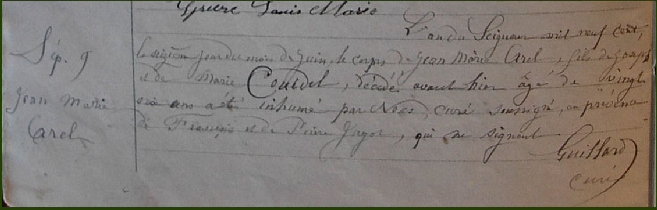 Louis Marie
Sép. 9
Jean Marie
Carel
L'an du Seigneur mil neuf cent,
le sixième jour du mois de Juin, le corps de Jean Marie Carel, fils de Joseph
et de Marie Coudel, décédé avant hier âgé de vingt
ans a été inhumé par Nous, curé soussigné, en présence
de François et de Pierre, qui ne signent
Guillard
curé